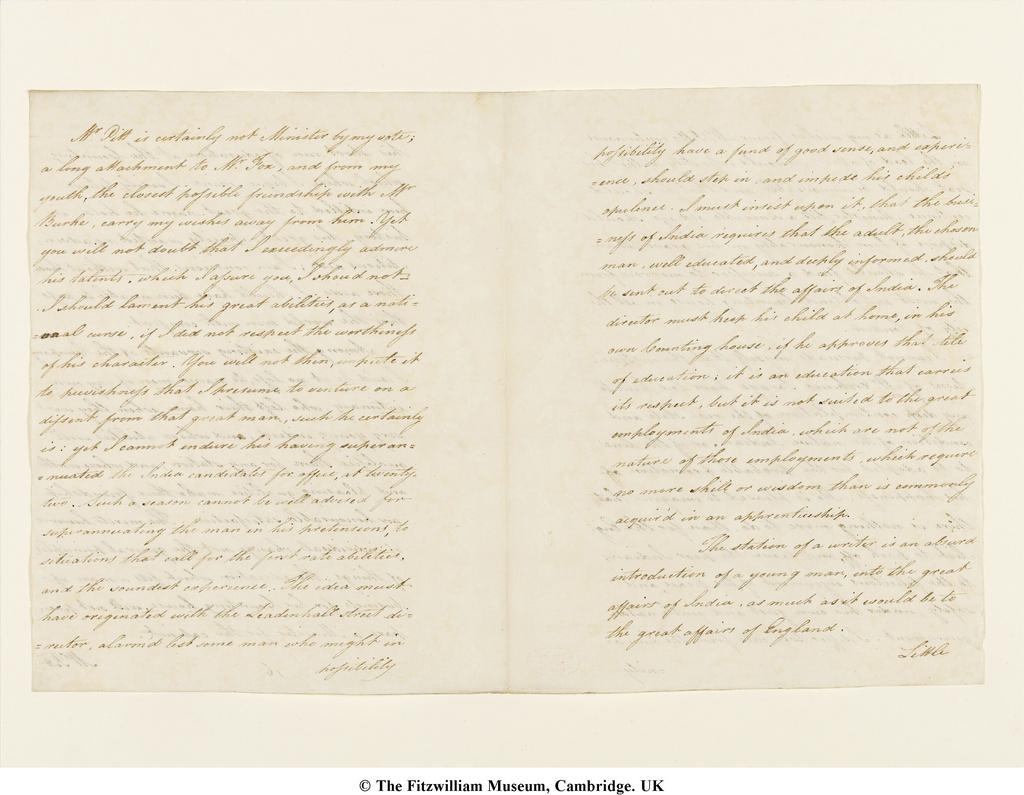 Mr Pitt is certainly not Minister by my vote;
a long attachment to Mr Fox, and from my
youth, the closest possible friendship with Mr
Burke, carry my wishes away from him. Yet
you will not doubt that I exceedingly admire
his talents, which I assure you, I should not.
I should lament his great abilities, as a nati-
=onal curse, if I did not respect the worthiness
of his character. You will not then, impute it
to peevishness that I presume to venture on a
dissent from that great man, such he certainly
is: yet I cannot endure his having superan=
=nuated the India candidates for office, at twenty-
two. Such a season cannot be well advised for
superannuating the man in his pretensions, to
situations that call for the first rate abilities,
and the soundest experience. The idea must
have originated with the Leadenhall Street di-
=rector, alarm'd lest some man who might in
possibility
possibility have a fund of good sense, and experi-
=ence, should step in, and impede his child's
opulence. I must insist upon it, that the busi-
=ness of India requires that the adult, the chosen
man, well educated, and deeply informed, should
be sent out to direct the affairs of India. The
director must keep his child at home, in his
own Counting house, if he approves that
of education; it is an education that carries
its respect, but it is not suited to the great
employments of India, which are not of the
nature of those employments, which require
no more skill or wisdom than is commonly
acquir'd in an apprenticeship.
The station of a writer is an absurd
introduction of a young man, into the great
affairs of India, as much as it would be to
the great affairs of England.
Little
© The Fitzwilliam Museum, Cambridge. UK